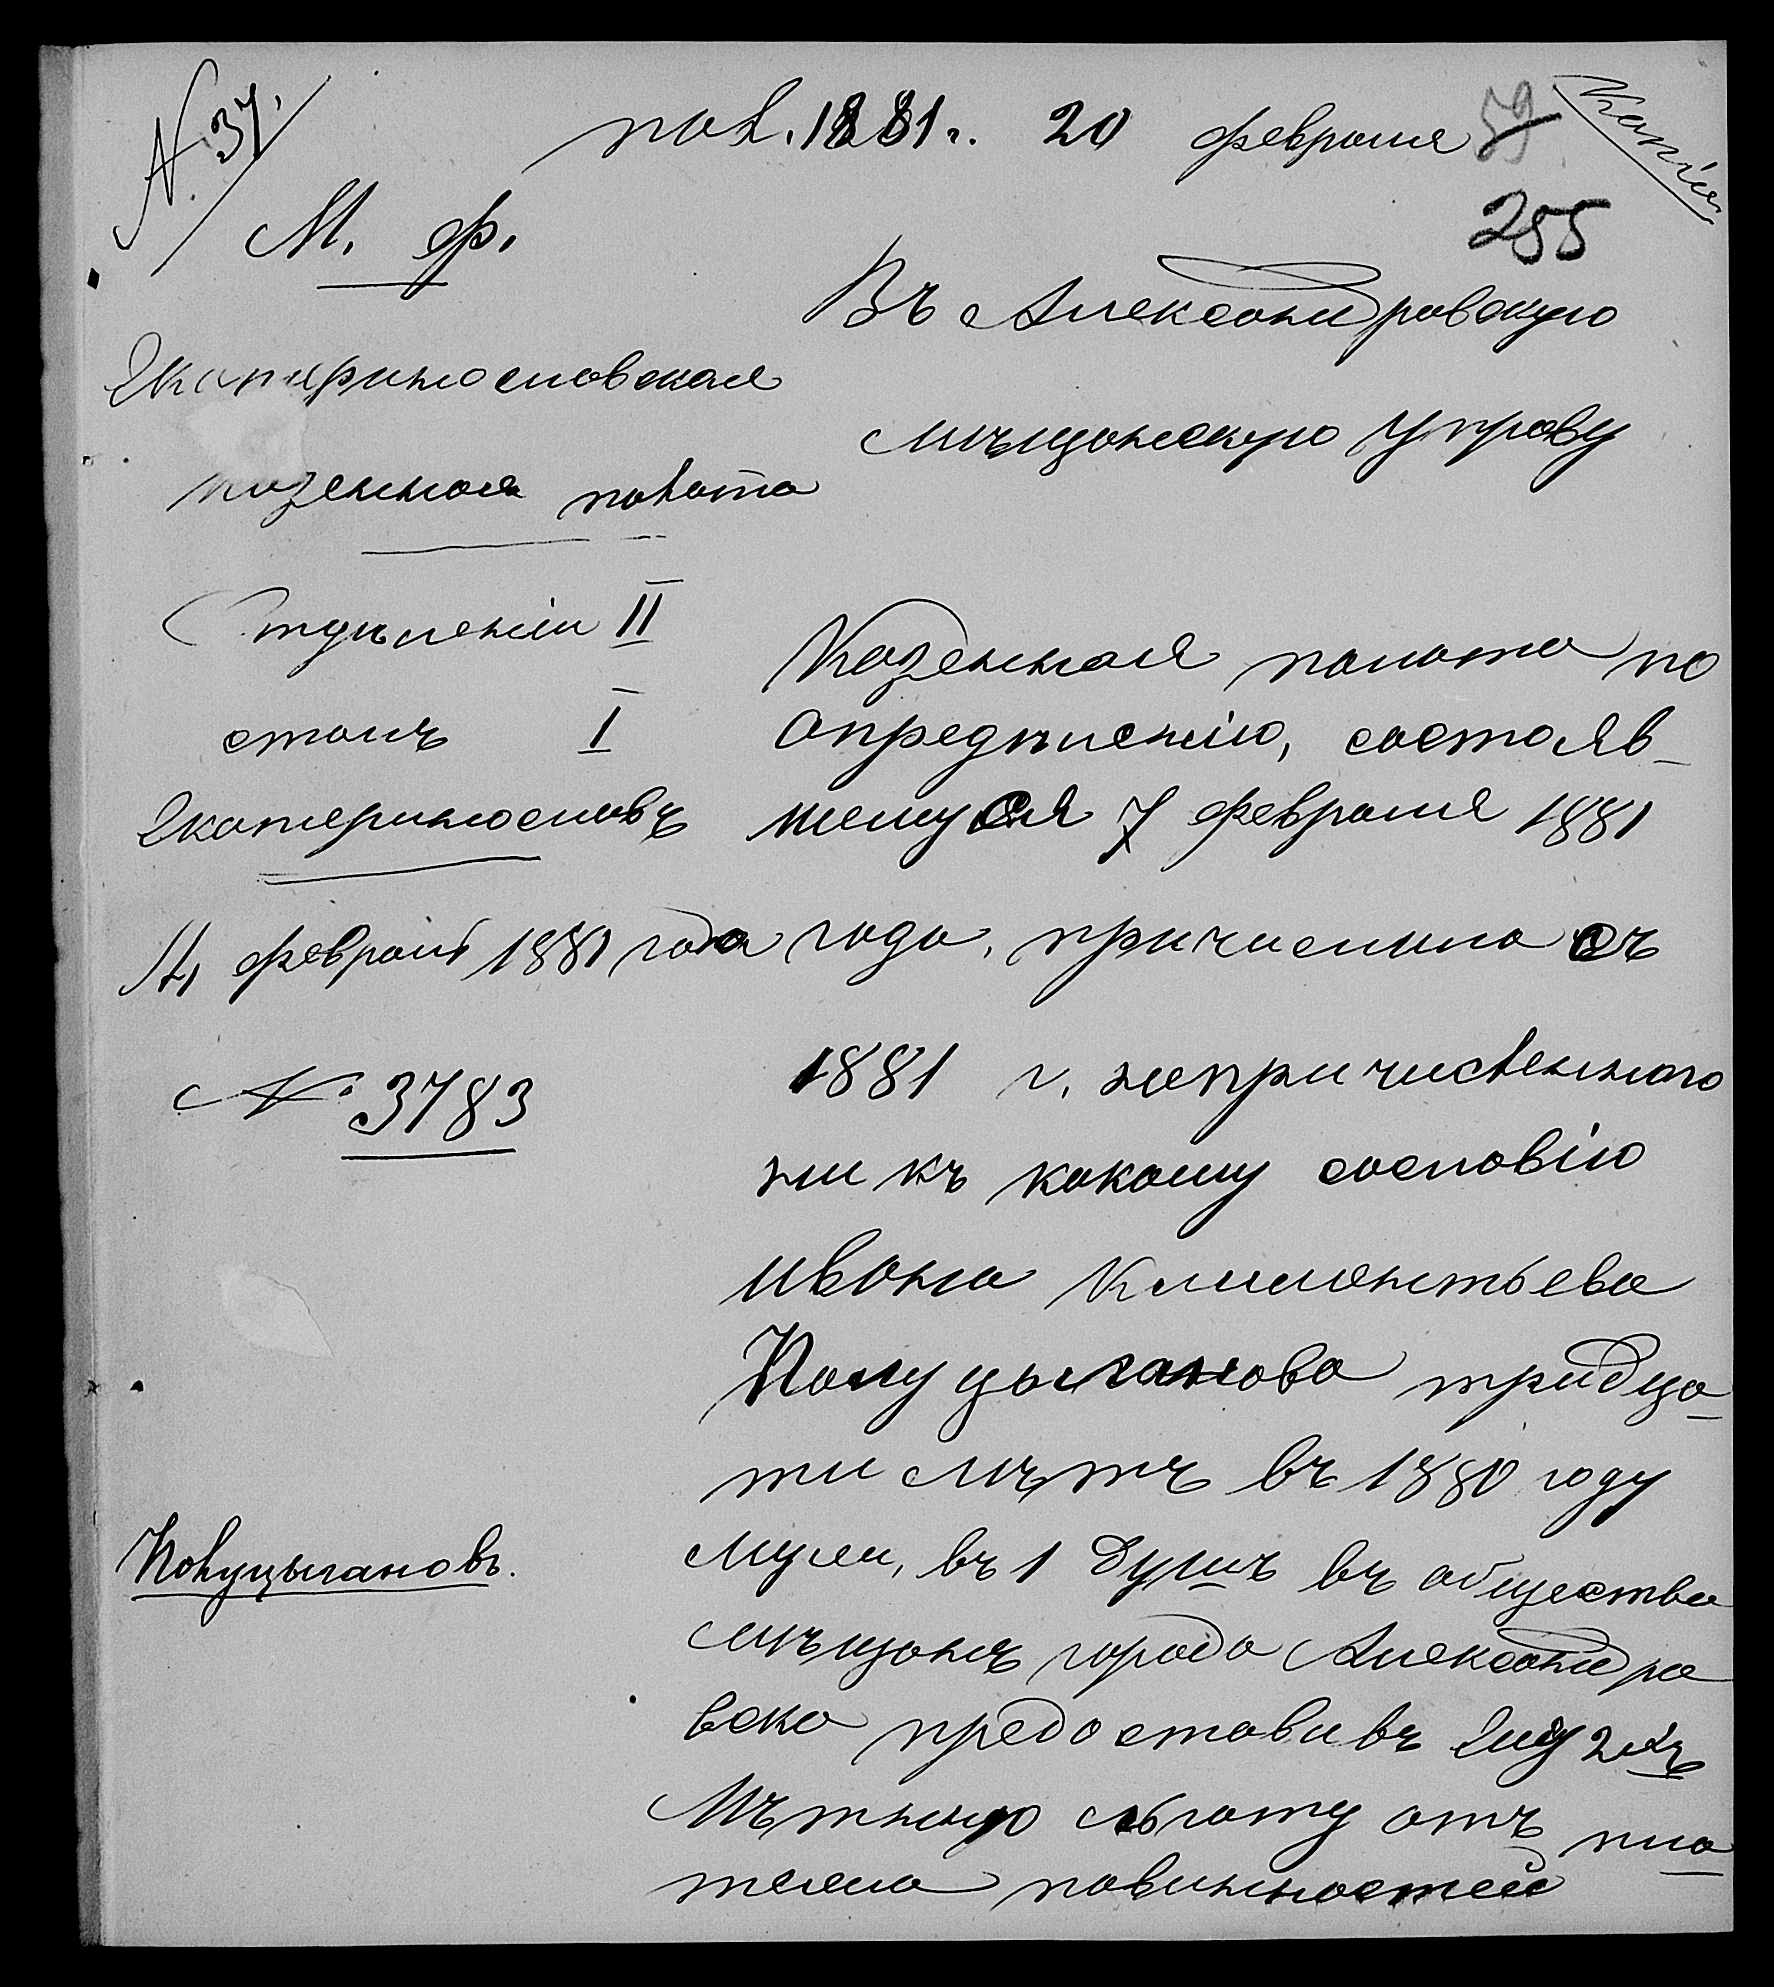 N. 37.
пол. 1881 г. 20 февраля
59
Копія
255
М. Ф.
Екатеринославская
казенная палата
Отдѣленіи II
столъ I
Екатеринославъ
14 февраля 1881 года
№ 3783
Полуцыгановъ.
Въ Александровскую
мѣщанскую управу
Казенная палата по
опредѣленію, состояв-
шемуся 7 февраля 1881
года, причислила съ
1881 г. непричисленнаго
ни къ какому сословію
Ивана Климентьева
Полуцыганова тридца-
ти лѣтъ въ 1880 году
мужи, въ 1 душѣ въ общество
мѣщанъ города Александро
вска предоставивъ ему 2хъ
лѣтнюю льготу отъ пла-
тежа повинностей